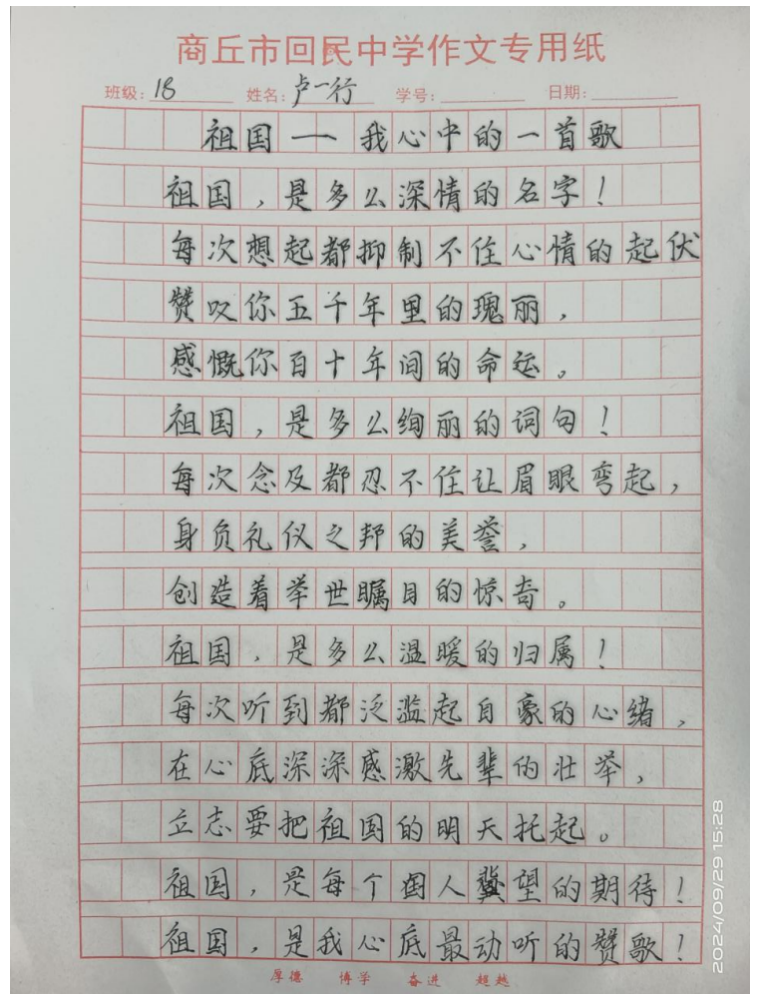 商丘市回民中学作文专用纸
班级: 18 姓名: 卢一行 学号: 日期:
祖国——我心中的一首歌
祖国,是多么深情的名字!
每次想起都抑制不住心情的起伏
赞叹你五千年里的瑰丽,
感慨你百十年间的命运。
祖国,是多么绚丽的词句!
每次念及都忍不住让眉眼弯起,
身负礼仪之邦的美誉,
创造着举世瞩目的惊奇。
祖国,是多么温暖的归属!
每次听到都泛滥起自豪的心绪,
在心底深深感激先辈的壮举,
立志要把祖国的明天托起。
祖国,是每个国人冀望的期待!
祖国,是我心底最动听的赞歌!
厚德 博学 奋进 超越
2024/09/29 15:28